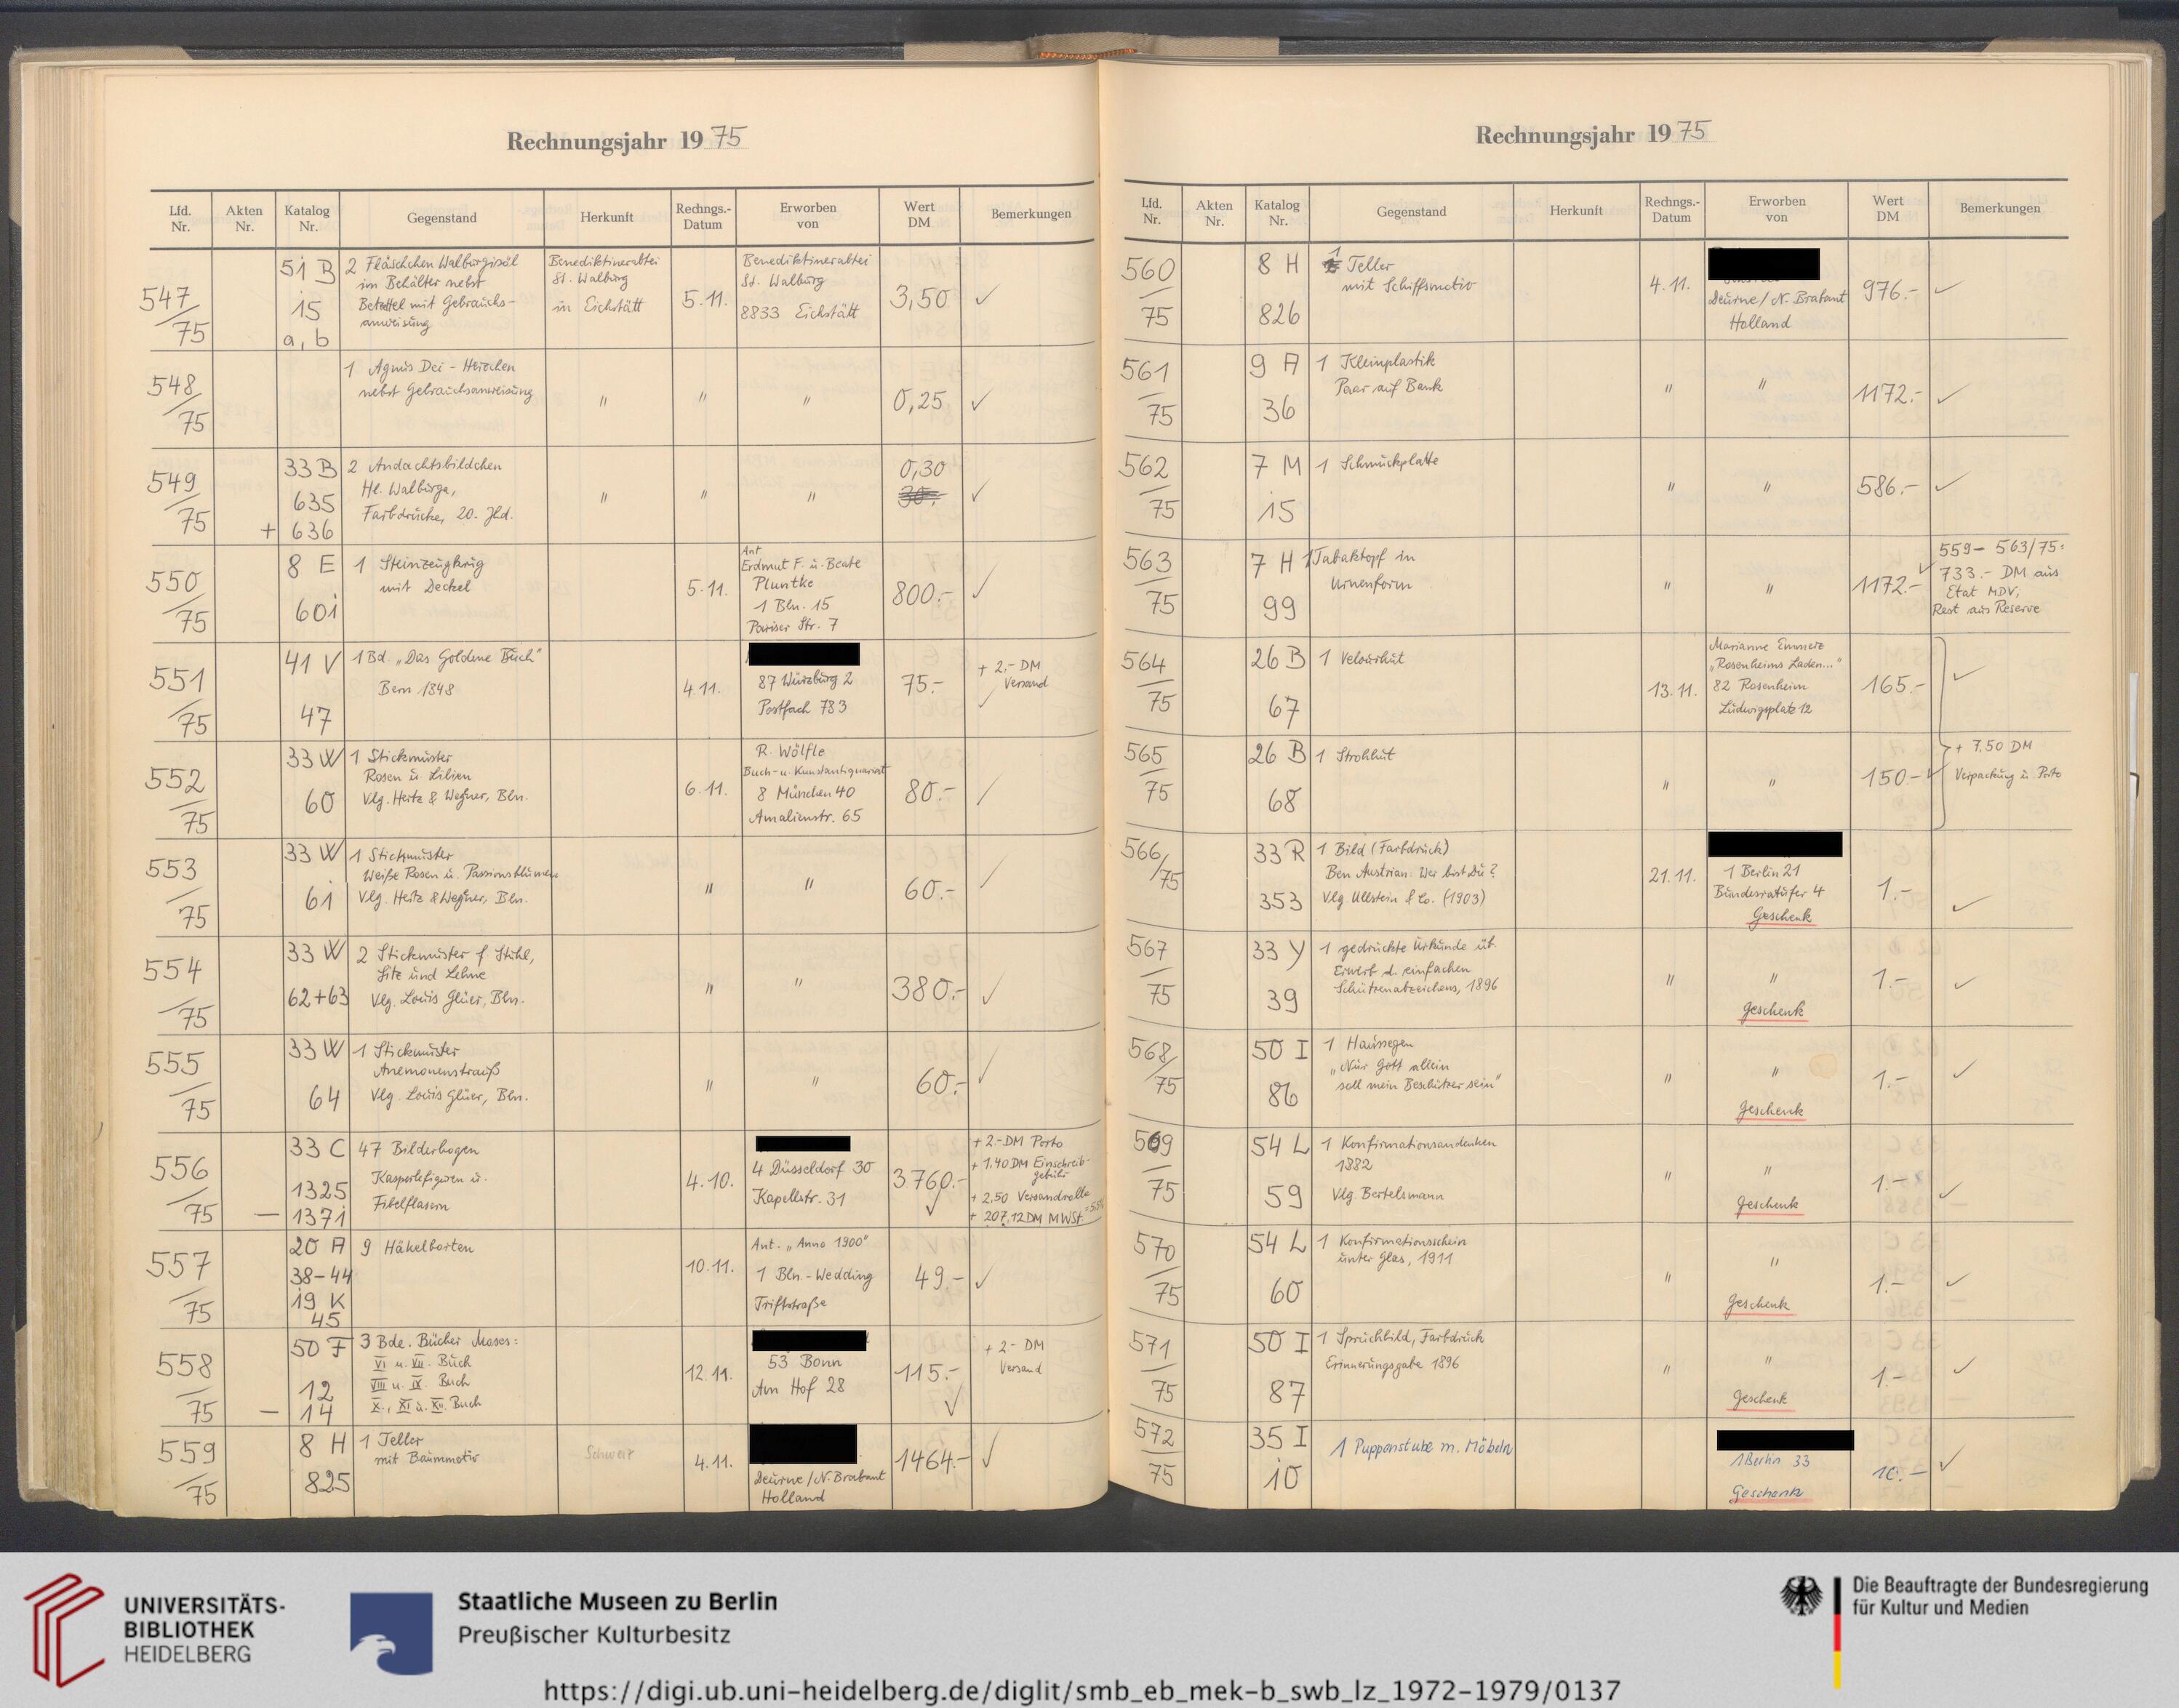 Rechnungsjahr 1975
Lfd. Nr.
Akten Nr.
Katalog Nr.
Gegenstand
Herkunft
Rechngs.-Datum
Erworben von
Wert DM
Bemerkungen
547/75
51 B
15
a, b
2 Fläschchen Walburgisöl
im Behälter nebst
Betzettel mit Gebrauchs-
anweisung
Benediktinerabtei
St. Walburg
in Eichstätt
5.11.
Benediktinerabtei
St. Walburg
8833 Eichstätt
3,50 ✓
548/75
1 Agnus Dei - Herzchen
nebst Gebrauchsanweisung
"
"
"
0,25 ✓
549/75
33 B
635
+ 636
2 Andachtsbildchen
Hl. Walburga,
Farbdrucke, 20. Jhd.
"
"
"
0,30
30.-
✓
550/75
8 E
601
1 Steinzeugkrug
mit Deckel
5.11.
Ant
Erdmut F. u. Beate
Pluntke
1 Bln. 15
Pariser Str. 7
800.- ✓
551/75
41 V
47
1 Bd. „Das Goldene Buch"
Bern 1848
4.11.
87 Würzburg 2
Postfach 783
75.-
+ 2,- DM
Versand
✓
552/75
33 W
60
1 Stickmuster
Rosen u. Lilien
Vlg. Hertz & Wegner, Bln.
6.11.
R. Wölfle
Buch- u. Kunstantiquariat
8 München 40
Amalienstr. 65
80.- ✓
553/75
33 W
61
1 Stickmuster
Weiße Rosen u. Passionsblumen
Vlg. Hertz & Wegner, Bln.
"
"
60.- ✓
554/75
33 W
62+63
2 Stickmuster f. Stuhl,
Sitz und Lehne
Vlg. Louis Glüer, Bln.
"
"
380.- ✓
555/75
33 W
64
1 Stickmuster
Anemonenstrauß
Vlg. Louis Glüer, Bln.
"
"
60.- ✓
556/75
33 C
1325
— 1371
47 Bilderbogen
Kasperlefiguren u.
4.10.
4 Düsseldorf 30
Kapellstr. 31
3.760.-
✓
+ 2.- DM Porto
+ 1,40 DM Einschreib-
gebühr
+ 2,50 Versandrolle
+ 207,12 DM MWSt
557/75
20 A
38-44
19 K
45
9 Häkelborten
10.11.
Ant. „Anno 1900"
1 Bln.-Wedding
Triftstraße
49.- ✓
558/75
50 F
12
— 14
3 Bde. Bücher Moses:
VI u. VII. Buch
VIII u. IX. Buch
X., XI u. XII. Buch
12.11.
53 Bonn
Am Hof 28
115.-
✓
+ 2.- DM
Versand
559/75
8 H
825
1 Teller
mit Baummotiv
4.11.
Deurne/N. Brabant
Holland
1464.- ✓
Rechnungsjahr 1975
Lfd. Nr.
Akten Nr.
Katalog Nr.
Gegenstand
Herkunft
Rechngs.-Datum
Erworben von
Wert DM
Bemerkungen
560/75
8 H
826
1 Teller
mit Schiffsmotiv
4.11.
Deurne/N. Brabant
Holland
976.- ✓
561/75
9 A
36
1 Kleinplastik
Paar auf Bank
"
"
1172.- ✓
562/75
7 M
15
1 Schmuckplatte
"
"
586.- ✓
563/75
7 H
99
1 Tabaktopf in
Urnenform
"
"
1172.- ✓
559 - 563/75:
733.- DM aus
Etat MDV,
Rest aus Reserve
564/75
26 B
67
1 Velourhut
13.11.
Marianne Emmerz
„Rosenheims Laden..."
82 Rosenheim
Ludwigsplatz 12
165.- ✓
565/75
26 B
68
1 Strohhut
"
"
150.- ✓
+ 7.50 DM
Verpackung u. Porto
566/75
33 R
353
1 Bild (Farbdruck)
Ben Austrian: Wer bist Du?
Vlg. Ullstein & Co. (1903)
21.11.
1 Berlin 21
Bundesratufer 4
Geschenk
1.- ✓
567/75
33 Y
39
1 gedruckte Urkunde üb.
Erwerb d. einfachen
Schützenabzeichens, 1896
"
"
Geschenk
1.- ✓
568/75
50 I
86
1 Haussegen
„Nur Gott allein
soll mein Beschützer sein"
"
"
Geschenk
1.- ✓
569/75
54 L
59
1 Konfirmationsandenken
1882
Vlg. Bertelsmann
"
"
Geschenk
1.- ✓
570/75
54 L
60
1 Konfirmationsschein
unter Glas, 1911
"
"
Geschenk
1.- ✓
571/75
50 I
87
1 Spruchbild, Farbdruck
Erinnerungsgabe 1896
"
"
Geschenk
1.- ✓
572/75
35 I
10
1 Puppenstube m. Möbeln
1 Berlin 33
Geschenk
10.- ✓
UNIVERSITÄTS-
BIBLIOTHEK
HEIDELBERG
Staatliche Museen zu Berlin
Preußischer Kulturbesitz
Die Beauftragte der Bundesregierung
für Kultur und Medien
https://digi.ub.uni-heidelberg.de/diglit/smb_eb_mek-b_swb_lz_1972-1979/0137